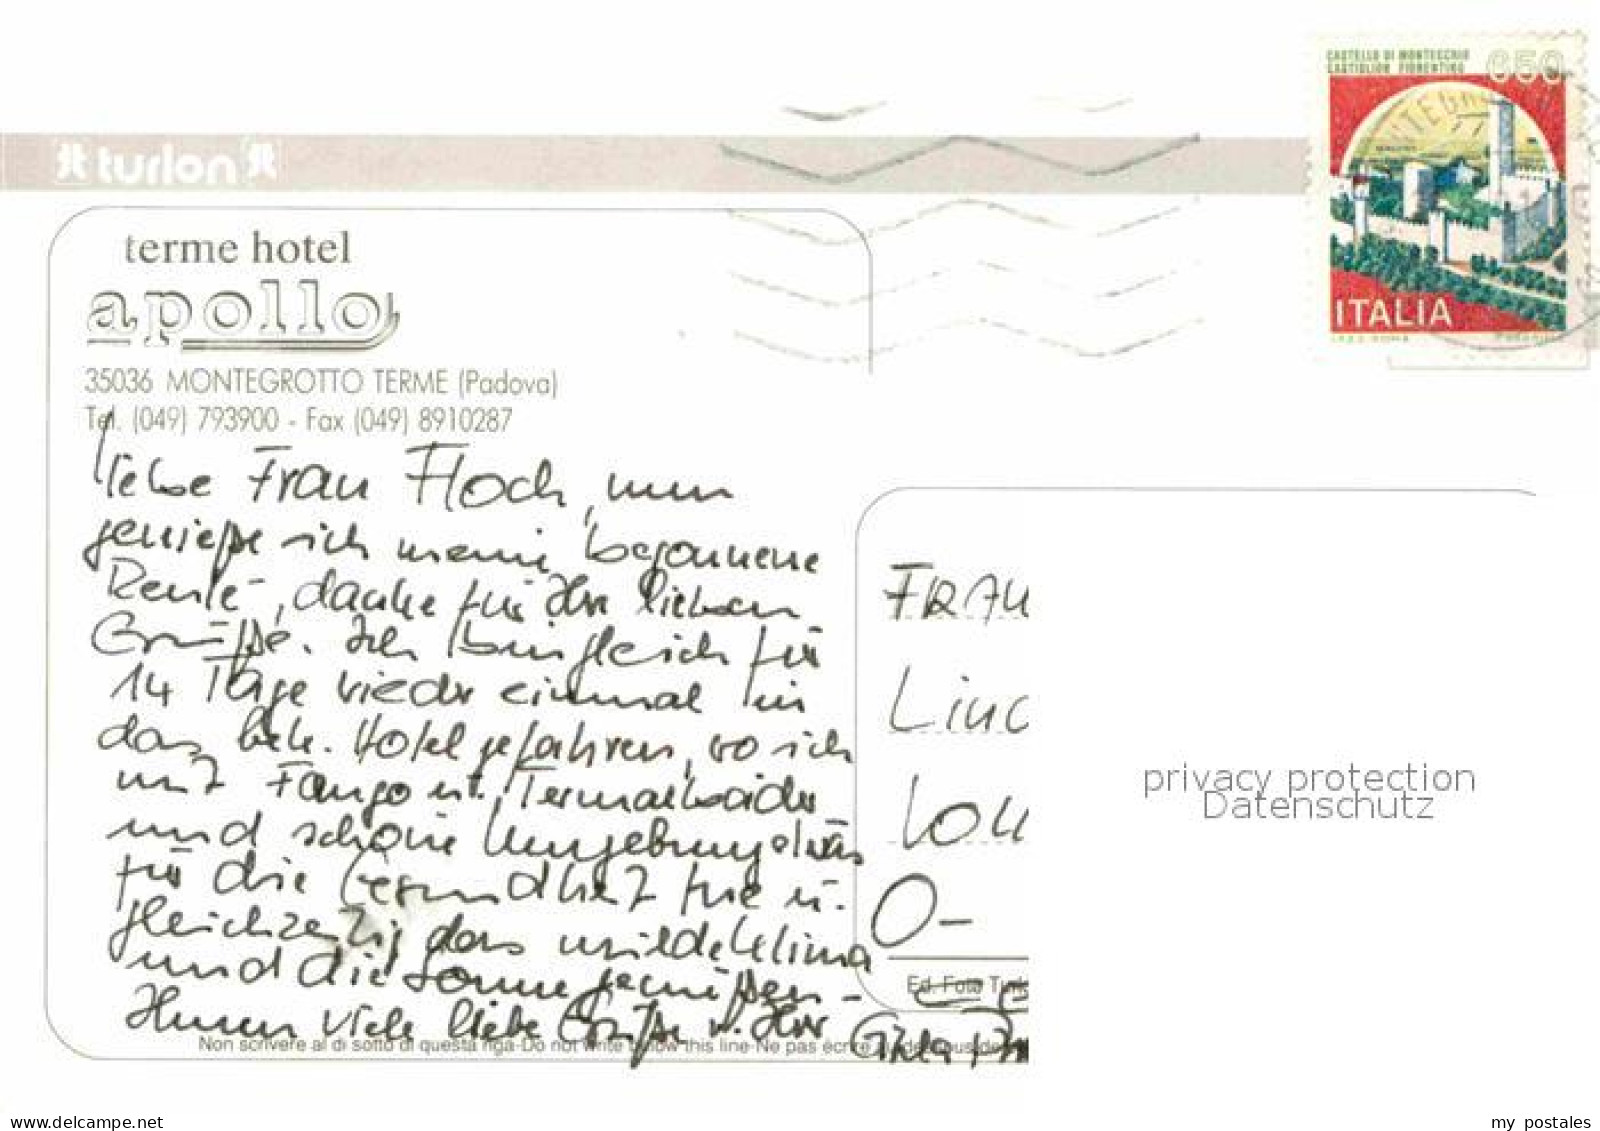 CASTELLO DI MONTECCHIO
CASTIGLION FIORENTINO
650
turlon
terme hotel
apollo
ITALIA
35036 MONTEGROTTO TERME (Padova)
Tel. (049) 793900 - Fax (049) 8910287
Liebe Frau Floch, nun
genieße ich meine begonnene
Rente, danke für Ihre lieben
Grüße. Ich bin gleich für
14 Tage wieder einmal in
das bek. Hotel gefahren, wo ich
mit Fango u. Termalbäder
und schöne Umgebung etwas
für die Gesundheit tue u.
gleichzeitig das milde Klima
und die Sonne genießen -
Ihnen viele liebe Grüße v. Ihr
Gisela
FRAU
Lind
O-
Ed. Foto Turl
Non scrivere al di sotto di questa riga-Do not write below this line-Ne pas écrire au-dessous de
privacy protection
Datenschutz
www.delcampe.net
my_postales